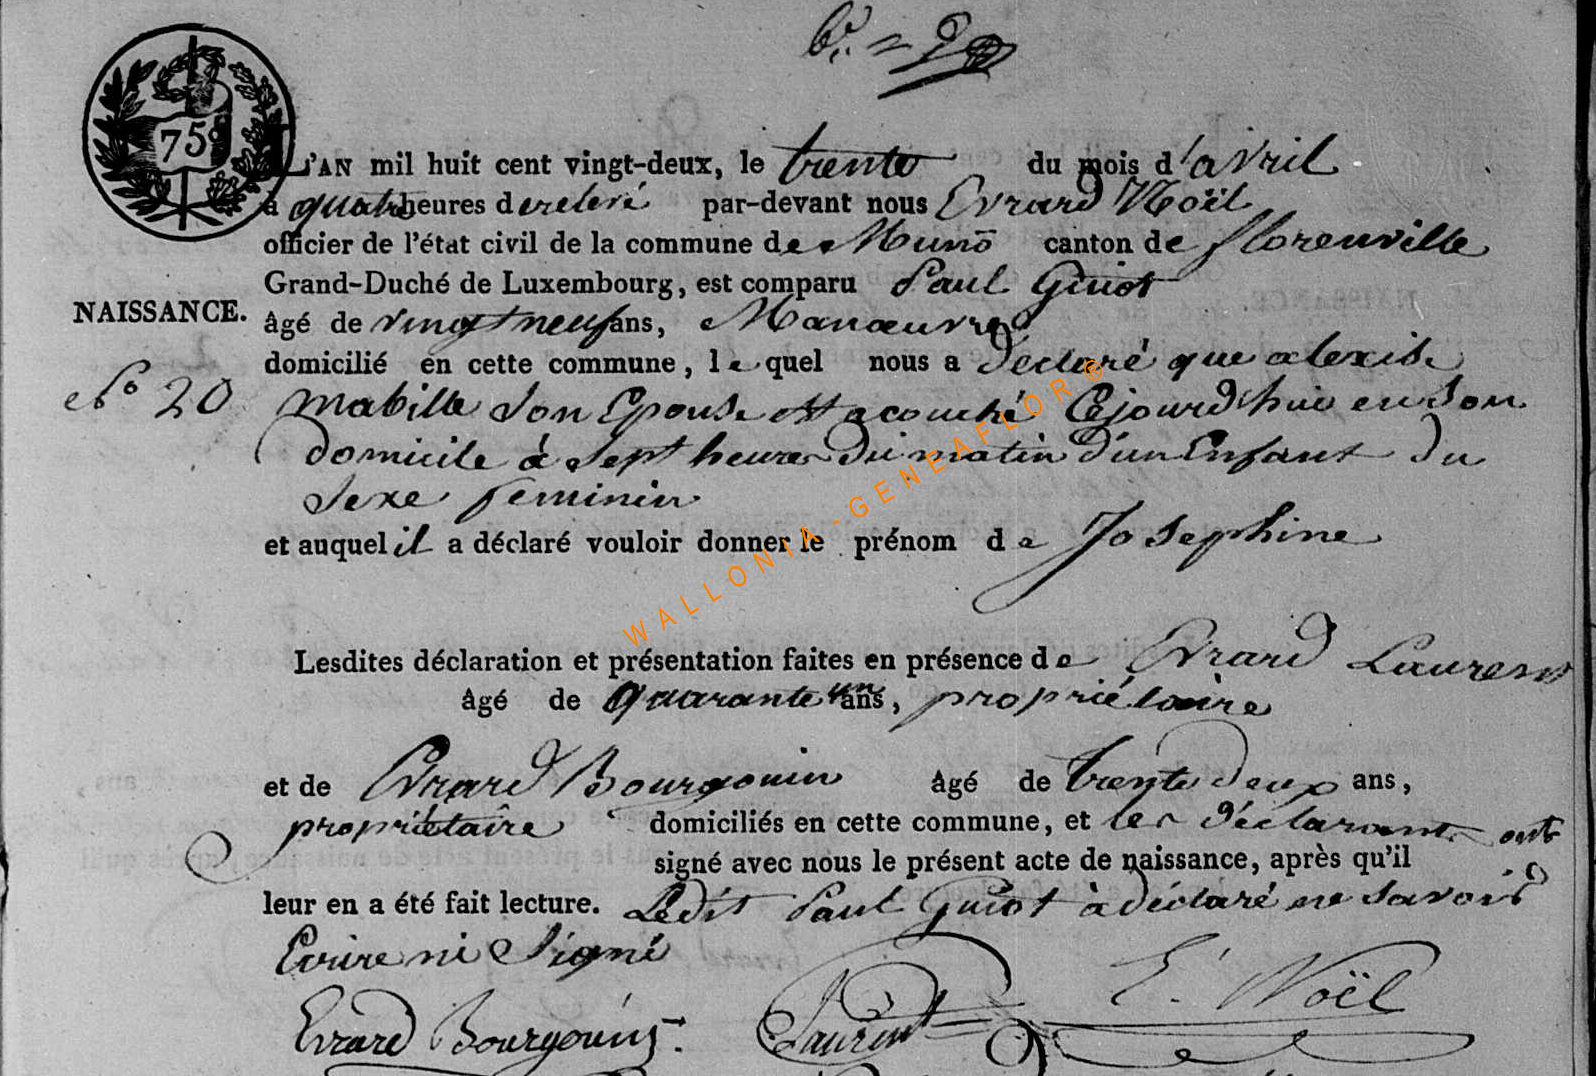 75
L'AN mil huit cent vingt-deux, le trente du mois d'avril
à quatre heures de relevé par-devant nous Evrard Noël
officier de l'état civil de la commune de Muno canton de florenville
Grand-Duché de Luxembourg, est comparu Paul Guiot
NAISSANCE.
âgé de vingt neuf ans, Manœuvre
domicilié en cette commune, le quel nous a déclaré que alexise
No 20
mabille son Epouse est acouché Cejourd'hui en son
domicile à sept heures du matin d'un Enfant du
sexe feminin
et auquel il a déclaré vouloir donner le prénom de Josephine
WALLONIA-GENEAFLOR®
Lesdites déclaration et présentation faites en présence de Evrard Laurent
âgé de quarante un ans, propriétaire
et de Evrard Bourgouin âgé de trente deux ans,
propriétaire domiciliés en cette commune, et les déclarants ont
signé avec nous le présent acte de naissance, après qu'il
leur en a été fait lecture. Ledit Paul Guiot à déclaré ne savoir
Ecrire ni Signé
E. Noël
Evrard Bourgouin Laurent